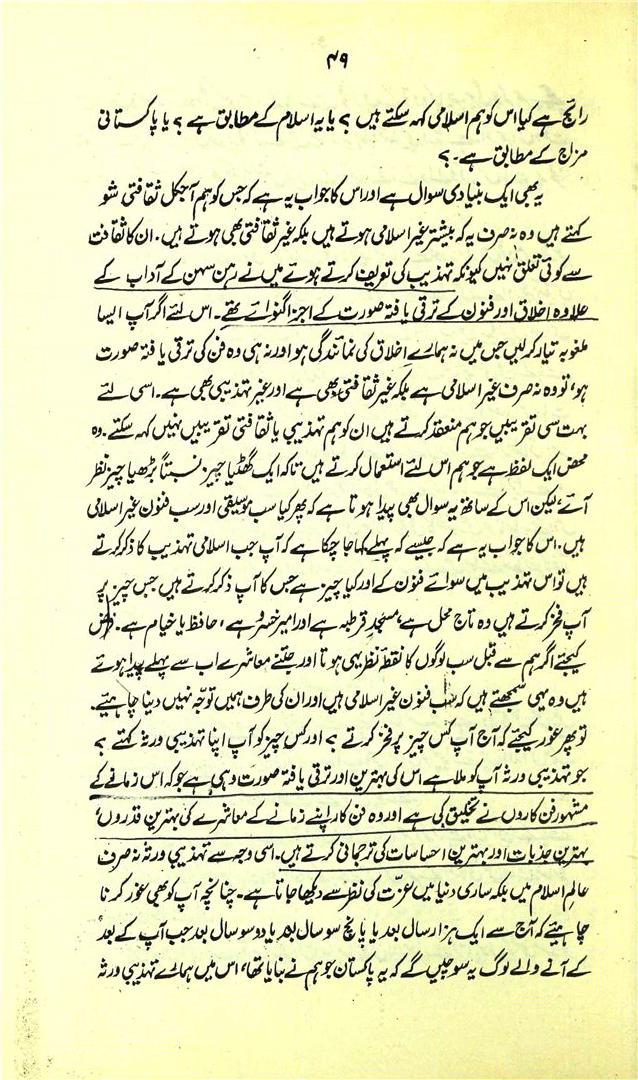 ۴۹
رائج ہے کیا اس کو ہم اسلامی کہہ سکتے ہیں ؟ یا یہ اسلام کے مطابق ہے ؟ یا پاکستانی
مزاج کے مطابق ہے ۔ ؟
یہ بھی ایک بنیادی سوال ہے اور اس کا جواب یہ ہے کہ جس کو ہم آجکل ثقافتی شو
کہتے ہیں وہ نہ صرف یہ کہ بیشتر غیر اسلامی ہوتے ہیں بلکہ غیر ثقافتی بھی ہوتے ہیں۔ ان کا ثقافت
سے کوئی تعلق نہیں کیونکہ تہذیب کی تعریف کرتے ہوئے میں نے رہن سہن کے آداب کے
علاوہ اخلاق اور فنون کے ترقی یافتہ صورت کے اجزا گنوائے تھے۔ اس لئے اگر آپ ایسا
ملغوبہ تیار کر لیں جس میں نہ ہمارے اخلاق کی نمائندگی ہو اور نہ ہی وہ فن کی ترقی یافتہ صورت
ہو، تو وہ نہ صرف غیر اسلامی ہے بلکہ غیر ثقافتی بھی ہے اور غیر تہذیبی بھی ہے۔ اسی لئے
بہت سی تقریبیں جو ہم منعقد کرتے ہیں ان کو ہم تہذیبی یا ثقافتی تقریبیں نہیں کہہ سکتے۔ وہ
محض ایک لفظ ہے جو ہم اس لئے استعمال کرتے ہیں تاکہ ایک گھٹیا چیز نسبتاً بڑھیا چیز نظر
آئے، لیکن اس کے ساتھ یہ سوال بھی پیدا ہوتا ہے کہ پھر کیا سب موسیقی اور سب فنون غیر اسلامی
ہیں۔ اس کا جواب یہ ہے کہ جیسے کہ پہلے کہا جا چکا ہے کہ آپ جب اسلامی تہذیب کا ذکر کرتے
ہیں تو اس تہذیب میں سوائے فنون کے اور کیا چیز ہے جس کا آپ ذکر کرتے ہیں جس چیز پر
آپ فخر کرتے ہیں وہ تاج محل ہے، مسجدِ قرطبہ ہے اور امیر خسرو ہے ، حافظ یا خیام ہے ۔ فرض
کیجئے اگر ہم سے قبل سب لوگوں کا نقطۂ نظر یہی ہوتا اور جتنے معاشرے اب سے پہلے پیدا ہوئے
ہیں وہ یہی سمجھتے ہیں کہ سب فنون غیر اسلامی ہیں اور ان کی طرف ہمیں توجّہ نہیں دینا چاہیئے۔
تو پھر غور کیجئے کہ آج آپ کس چیز پر فخر کرتے ؟ اور کس چیز کو آپ اپنا تہذیبی ورثہ کہتے ؟
جو تہذیبی ورثہ آپ کو ملا ہے اس کی بہترین اور ترقی یافتہ صورت وہی ہے جو کہ اس زمانے کے
مشہور فن کاروں نے تخلیق کی ہے اور وہ فن کار اپنے زمانے کے معاشرے کی بہترین قدروں،
بہترین جذبات اور بہترین احساسات کی ترجمانی کرتے ہیں۔ اسی وجہ سے تہذیبی ورثہ نہ صرف
عالمِ اسلام میں بلکہ ساری دنیا میں عزّت کی نظر سے دیکھا جاتا ہے۔ چنانچہ آپ کو بھی غور کرنا
چاہیئے کہ آج سے ایک ہزار سال بعد یا پانچ سو سال بعد یا دو سو سال بعد جب آپ کے بعد
کے آنے والے لوگ یہ سوچیں گے کہ یہ پاکستان جو ہم نے بنایا تھا، اس میں ہمارے تہذیبی ورثہ